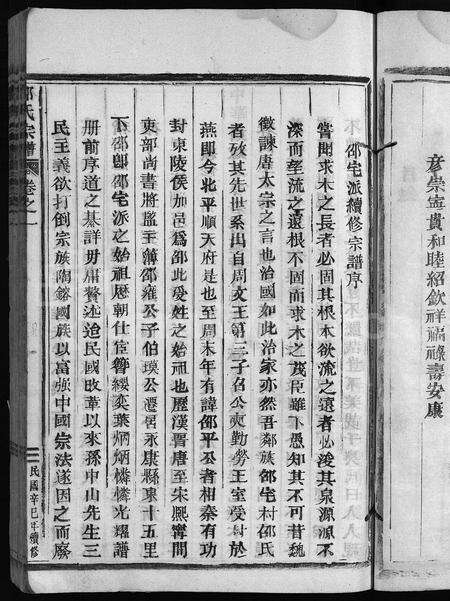 彥崇寧貴和睦紹欽祥福祿壽安康
邵宅派續修宗譜序
嘗聞求木之長者必固其根本欲流之遠者必浚其泉源源不
深而望流之遠根不固而求木之茂臣雖下愚知其不可昔魏
徵諫唐太宗之言也治國如此治家亦然吾鄰族邵宅村邵氏
者攷其先世系出自周文王第三子召公奭勤勞王室受封於
燕即今北平順天府是也至周末年有諱邵平公者相秦有功
封東陵侯加邑爲邵此受姓之始祖也歷漢晉唐至宋熙寧間
吏部尚書將監主簿邵雍公子伯璞公遷居永康縣東十五里
下邵即邵宅派之始祖歷朝仕宦簪纓奕葉炳炳燐燐光耀譜
冊前序道之綦詳毋庸贅述迨民國改革以來孫中山先生三
民主義欲打倒宗族陶鎔國族以富强中國宗法遂因之而廢
邵氏宗譜
卷之一
民國辛巳年續修